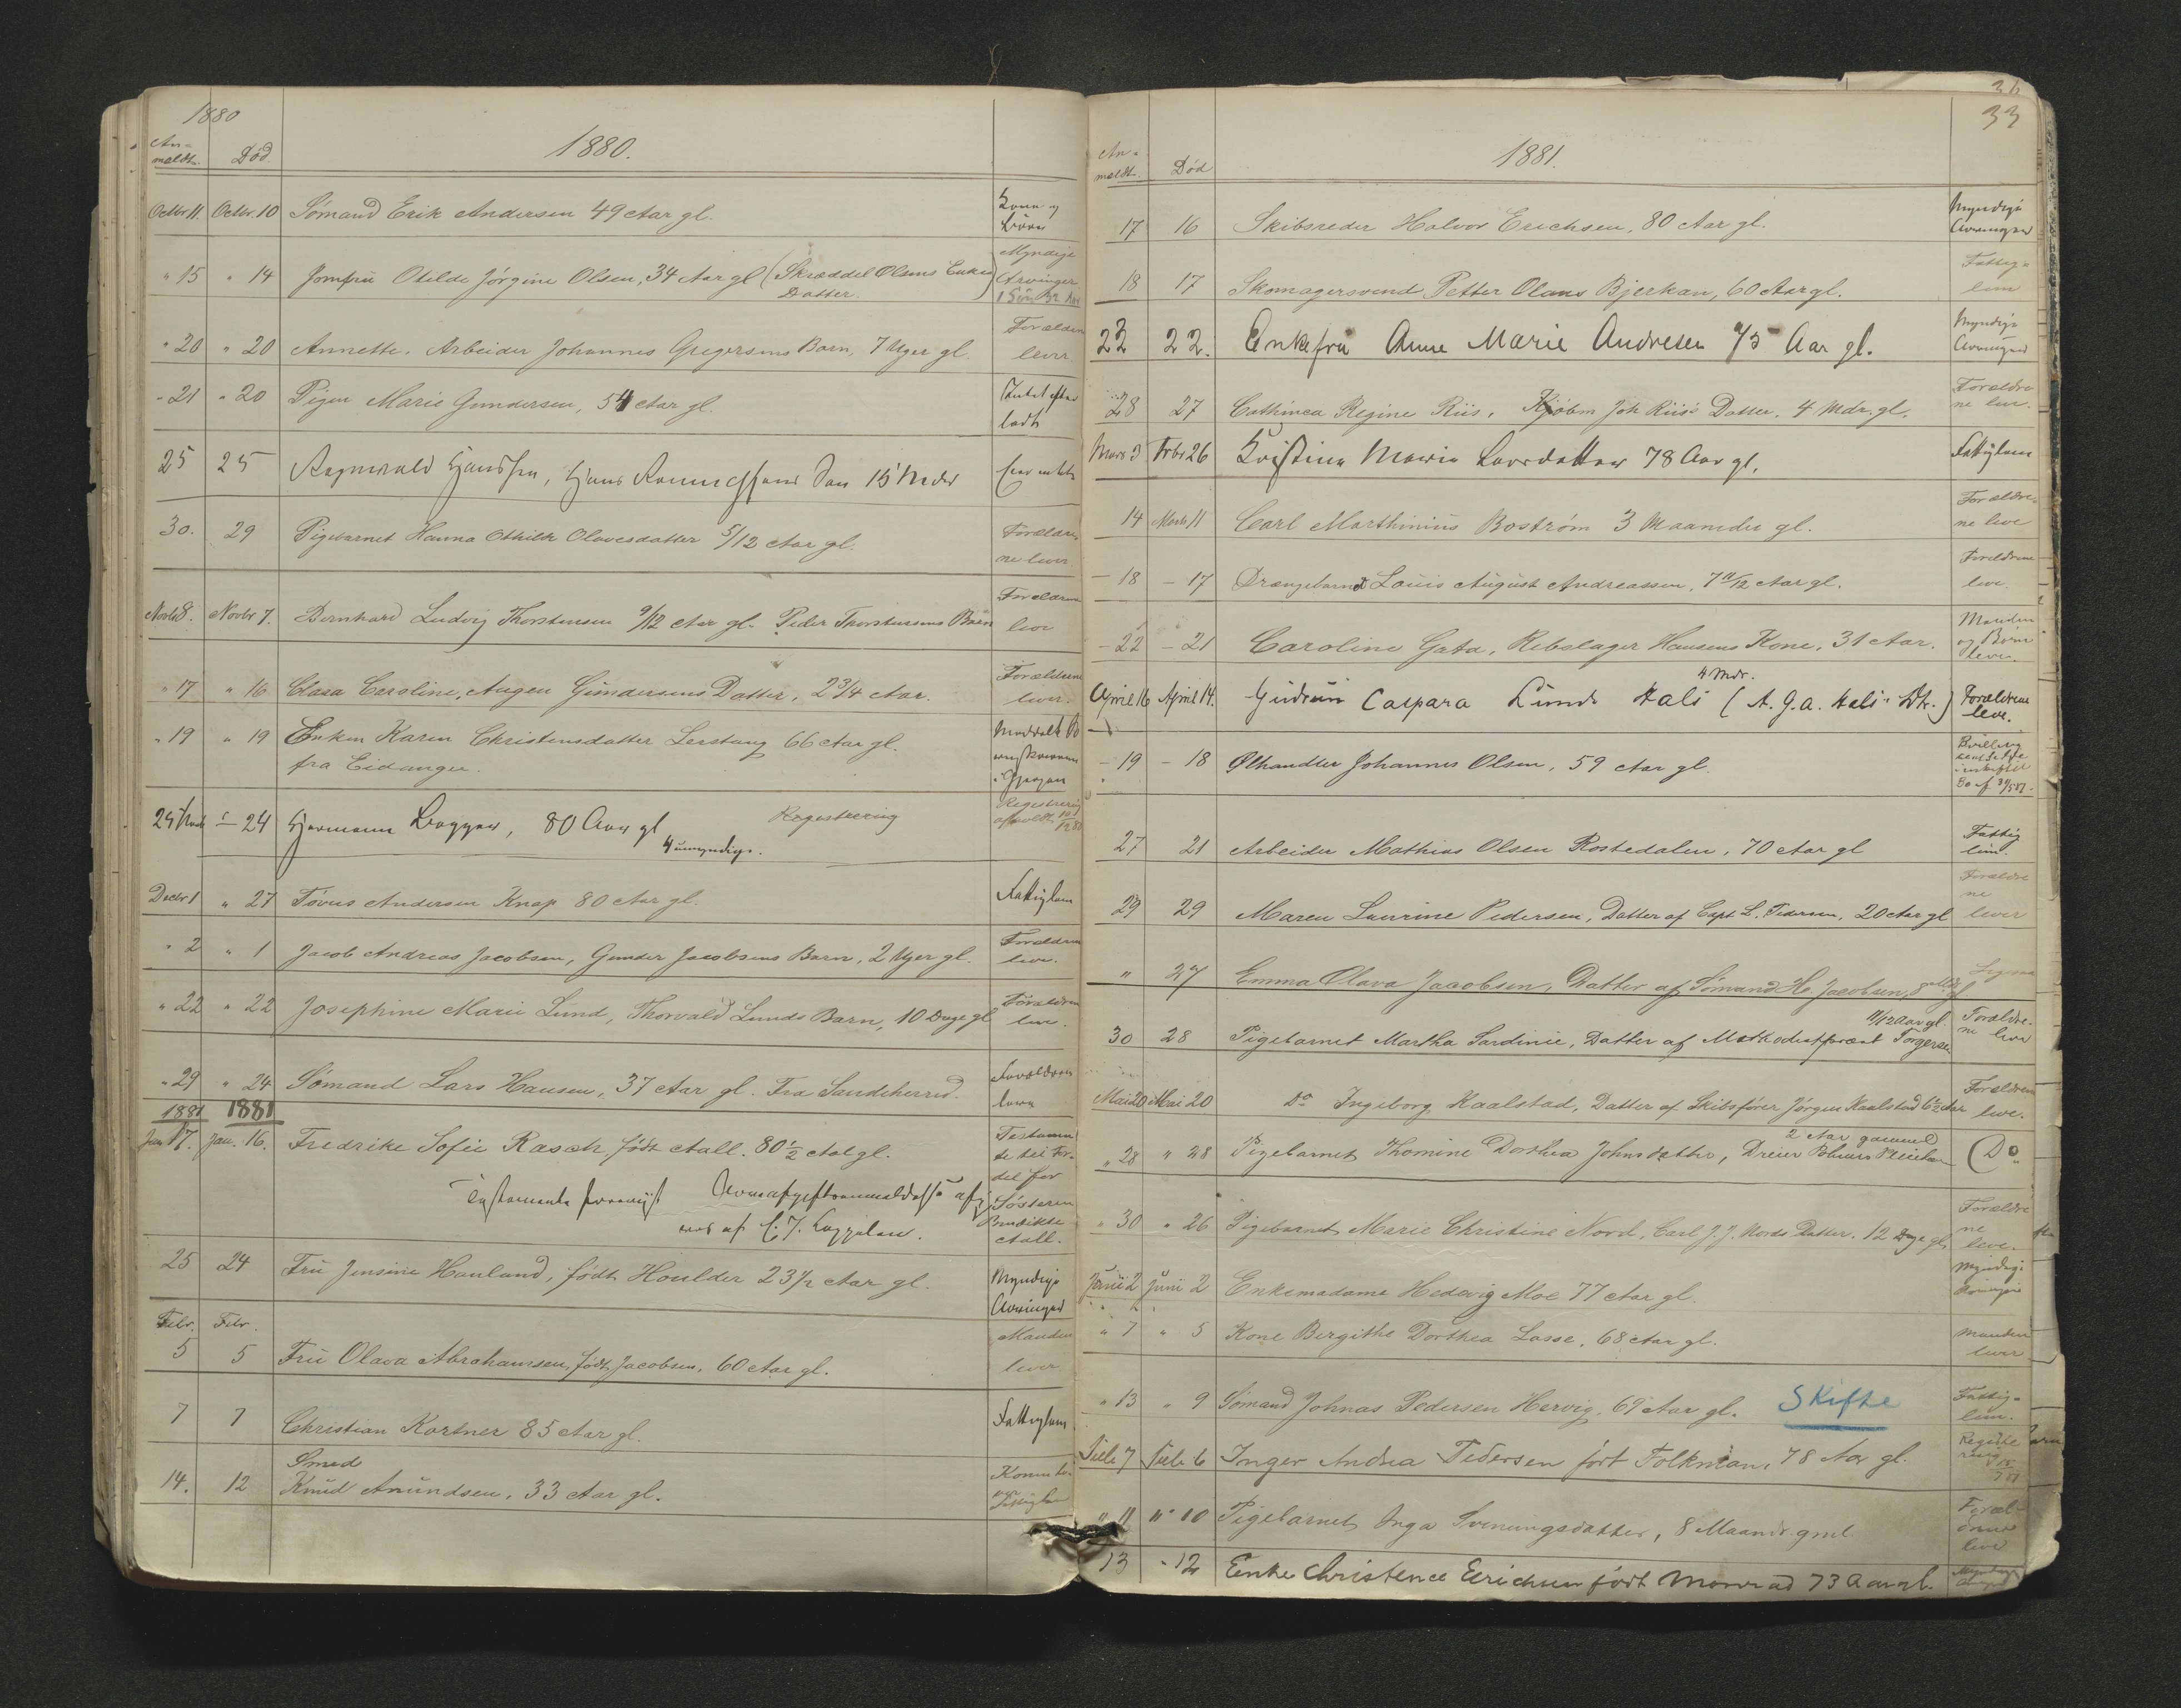 1880
An-
meldt. Død. 1880.
Octbr 11. Octbr. 10 Sömand Erik Andersen 49 Aar gl. Kone og
Börn
" 15 " 14 Jomfru Otilde Jörgine Olsen, 34 Aar gl (Skrædder Olsens Enkes
Datter.) Myndige
Arvinger
" 20 " 20 Annette, Arbeider Johannes Gregersens Barn, 7 Uger gl. Forældrene
lever.
- 21 " 20 Pigen Marie Gundersen, 54 Aar gl. Intet efter
ladt
25 25 Ragnvald Hansen, Hans 15 Mdr
30. 29 Pigebarnet Hanna Othilde Olavesdatter 5/12 Aar gl. Forældre
ne lever.
Novbr 8. Novbr 7. Bernhard Ludvig Thorstensen 9/12 Aar gl. Peder Thorstensens Barn Forældrene
leve
" 17 " 16 Clara Caroline, Augen Gundersens Datter, 2 3/4 Aar. Forældrene
lever.
" 19 " 19 Enken Karen Christensdatter Lerstang 66 Aar gl.
fra Eidanger.
24 - 24 Hermann Bagger, 80 Aar gl Registrering
4 umyndige. Registrering
Decbr 1 " 27 Torus Andersen Knap 80 Aar gl. Fattiglem
" 2 " 1 Jacob Andreas Jacobsen, Gunder Jacobsens Barn, 2 Uger gl. Forældrene
leve.
" 22 " 22 Josephine Marie Lund, Thorvald Lunds Barn, 10 Dage gl Forældrene
leve.
" 29 " 24 Sömand Lars Hansen, 37 Aar gl. Fra Sandeherred. Forældrene
leve
1881 1881
Jan 17. Jan. 16. Fredrike Sofie Rasch födt Aall. 80 1/2 Aar gl. Testamen
te til For-
del for
Sösteren
Bendikte
Aall.
Testamente
af C. J.
25 24 Fru Jensine Houland, födt Houlder 23 1/2 Aar gl. Myndige
Arvinger
Febr. Febr.
5 5 Fru Olava Abrahamsen, födt Jacobsen, 60 Aar gl. Manden
lever
7 7 Christian Kortner 85 Aar gl. Fattiglem
Smed
14. 12 Knud Anundsen, 33 Aar gl. Konen
36
33
An-
meldt. Död 1881.
17 16 Skibsreder Halvor Erichsen, 80 Aar gl. Myndige
Arvinger
18 17 Skomagersvend Petter Olaus Bjerkan, 60 Aar gl. Fattig-
lem
22 22. Enkefru Anne Marie Andresen 75 Aar gl. Myndige
Arvinger
28 27 Cathinca Regine Riis, Kjöbm Joh Riis's Datter, 4 Mdr. gl. Forældre
ne leve.
Mars 3 Febr 26 Kristine Marie Larsdatter 78 Aar gl. Fattiglem
14 Marts 11 Carl Marthinius Boström 3 Maaneder gl. Forældre-
ne leve
- 18 - 17 Drengebarnet Louis August Andreassen, 7 11/12 Aar gl. Forældrene
leve.
- 22 - 21 Caroline Gata, Rebslager Hansens Kone, 31 Aar. Manden
og Börn
leve.
4 Mdr.
April 16 April 14. Gudrun Caspara Lund Hals (A. G. A. Hals' Dtr.) Forældrene
leve.
- 19 - 18 Ølhandler Johannes Olsen, 59 Aar gl. Bevilling
27 21 Arbeider Mathias Olsen Rostedalen, 70 Aar gl Fattig
lem.
29 29 Maren Laurine Pedersen, Datter af Capt. L. Pedersen, 20 Aar gl Forældre
ne
lever
" 27 Emma Olava Jacobsen, Datter af Sömand H. Jacobsen, 8 Mdr gl
11/12 Aar gl.
30 28 Pigebarnet Martha Sardinie, Datter af Metkodistpræst Torgersen Forældre-
ne leve
Mai 20 Mai 20 Do Ingeborg Kaalstad, Datter af Skibsförer Jörgen Kaalstad 6 1/2 Aar Forældrene
leve.
2 Aar gammel
" 28 " 28 Pigebarnet Thomine Dorthea Johnsdatter, Dreier Do
" 30 " 26 Pigebarnet Marie Christine Nord, Carl J. J. Nords Datter. 12 Dage gl Forældre
ne
leve.
Juni 2 Juni 2 Enkemadame Hedevig Moe 77 Aar gl. Myndige
Arvinger
" 7 " 5 Kone Birgithe Dorthea Lasse, 68 Aar gl. Manden
lever
" 13 " 9 Sömand Johnas Pedersen Hervig, 69 Aar gl. Skifte Fattig-
lem.
Juli 7 Juli 6 Inger Andrea Pedersen födt Folkman, 78 Aar gl. Registre
ring
" 11 " 10 Pigebarnet Inga Svenningsdatter, 8 Maand. gml. Foræl-
drene
leve
13 " 12 Enke Christence Erichsen födt Monrad 73 Aar gl.